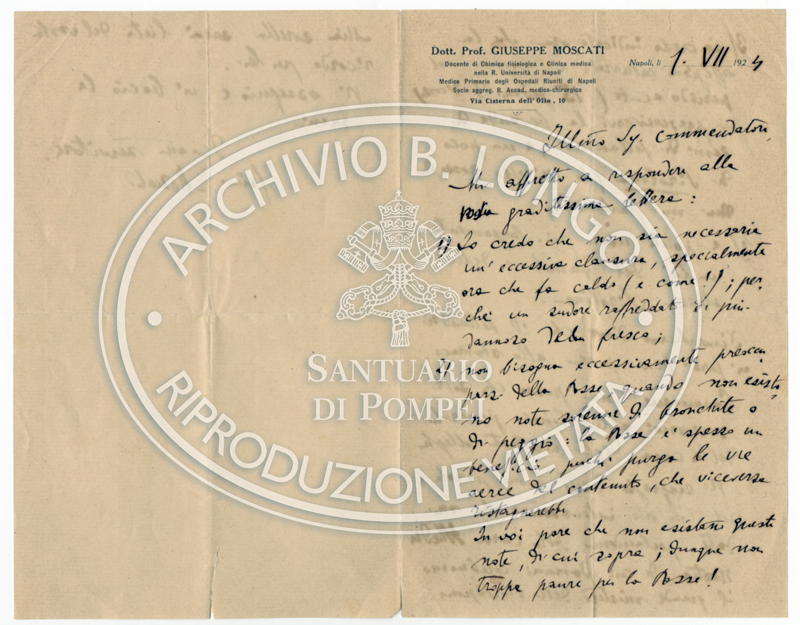 Dott. Prof. GIUSEPPE MOSCATI
Docente di Chimica fisiologica e Clinica medica
nella R. Università di Napoli
Medico Primario degli Ospedali Riuniti di Napoli
Socio aggreg. R. Accad. medico-chirurgica
Via Cisterna dell'Olio, 10
Napoli, li 1. VII 1924
Ill.mo Sig. Commendatore,
Mi affretto a rispondere alla
vostra graditissima lettera:
1) Io credo che non sia necessaria
un'eccessiva clausura, specialmente
ora che fa caldo (e come!); per-
chè un sudore raffreddato è più
dannoso del fresco;
2) non bisogna eccessivamente preoccu-
parsi della tosse quando non esisto-
no note di bronchite o
di peggio: la tosse è spesso un
beneficio perchè purga le vie
aeree del contenuto, che viceversa
ristagnerebbe
In voi pare che non esistano queste
note, di cui sopra; dunque non
troppe paure per la tosse!
ARCHIVIO B. LONGO
SANTUARIO
DI POMPEI
RIPRODUZIONE VIETATA